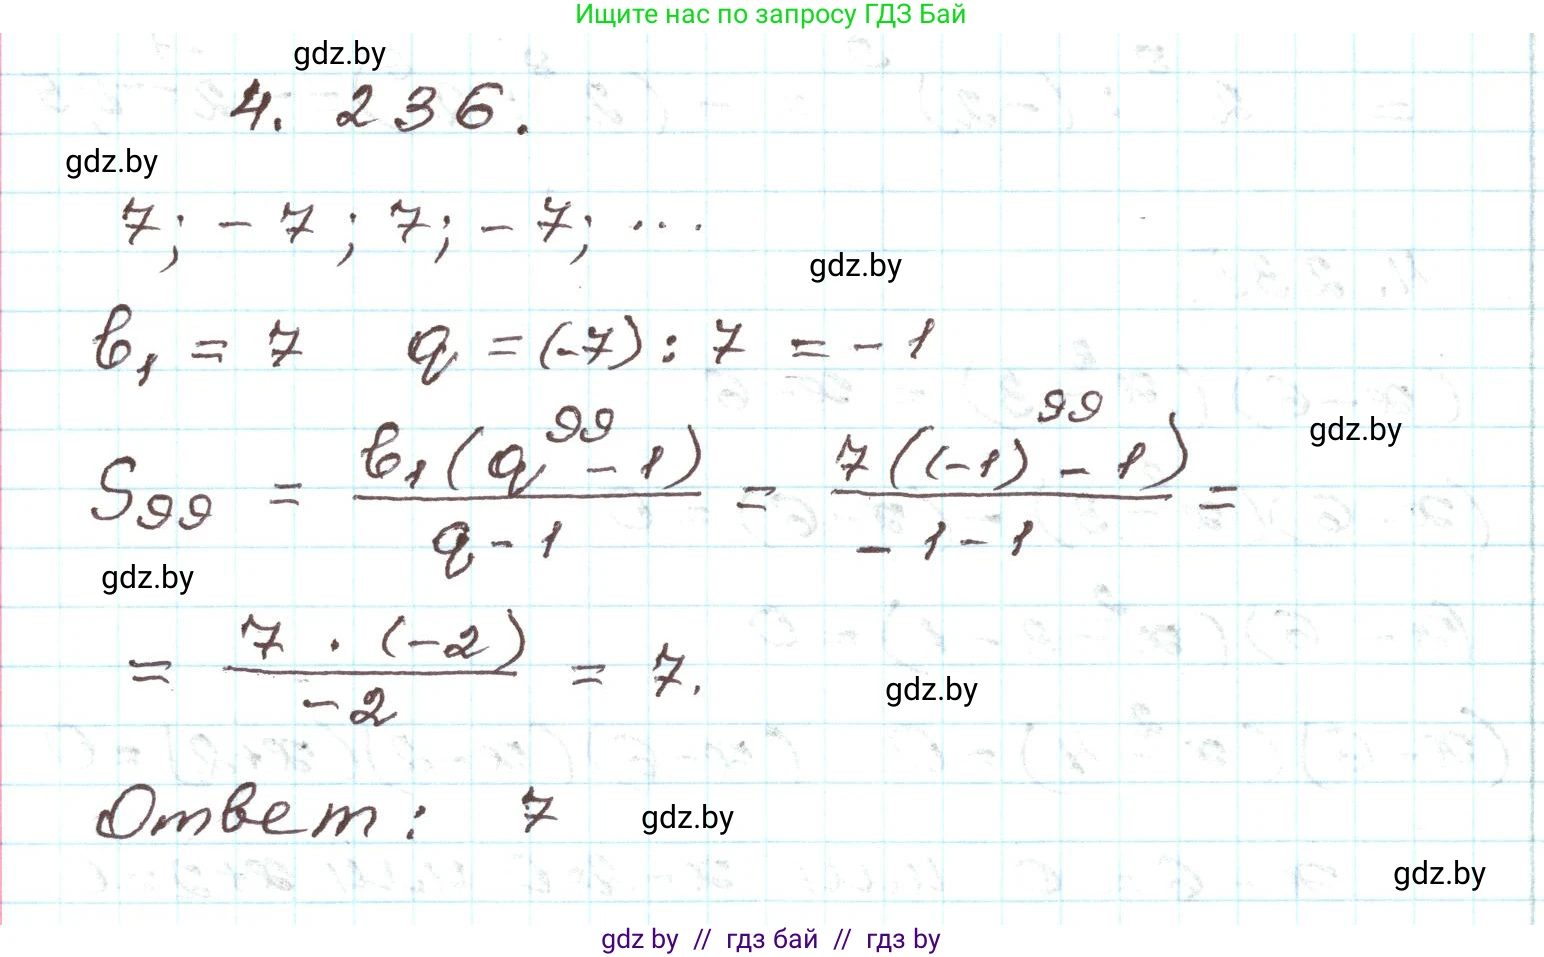 Ищите нас по запросу ГДЗ Бай
gdz.by
4. 236.
gdz.by
7; - 7; 7; - 7; ...
gdz.by
b₁ = 7 q = (-7) : 7 = - 1
S₉₉ = b₁(q⁹⁹ - 1) / q - 1 = 7((-1)⁹⁹ - 1) / - 1 - 1 =
gdz.by
gdz.by
= 7 · (-2) / -2 = 7.
gdz.by
Ответ: 7
gdz.by
gdz.by
gdz by // гдз бай // гдз by